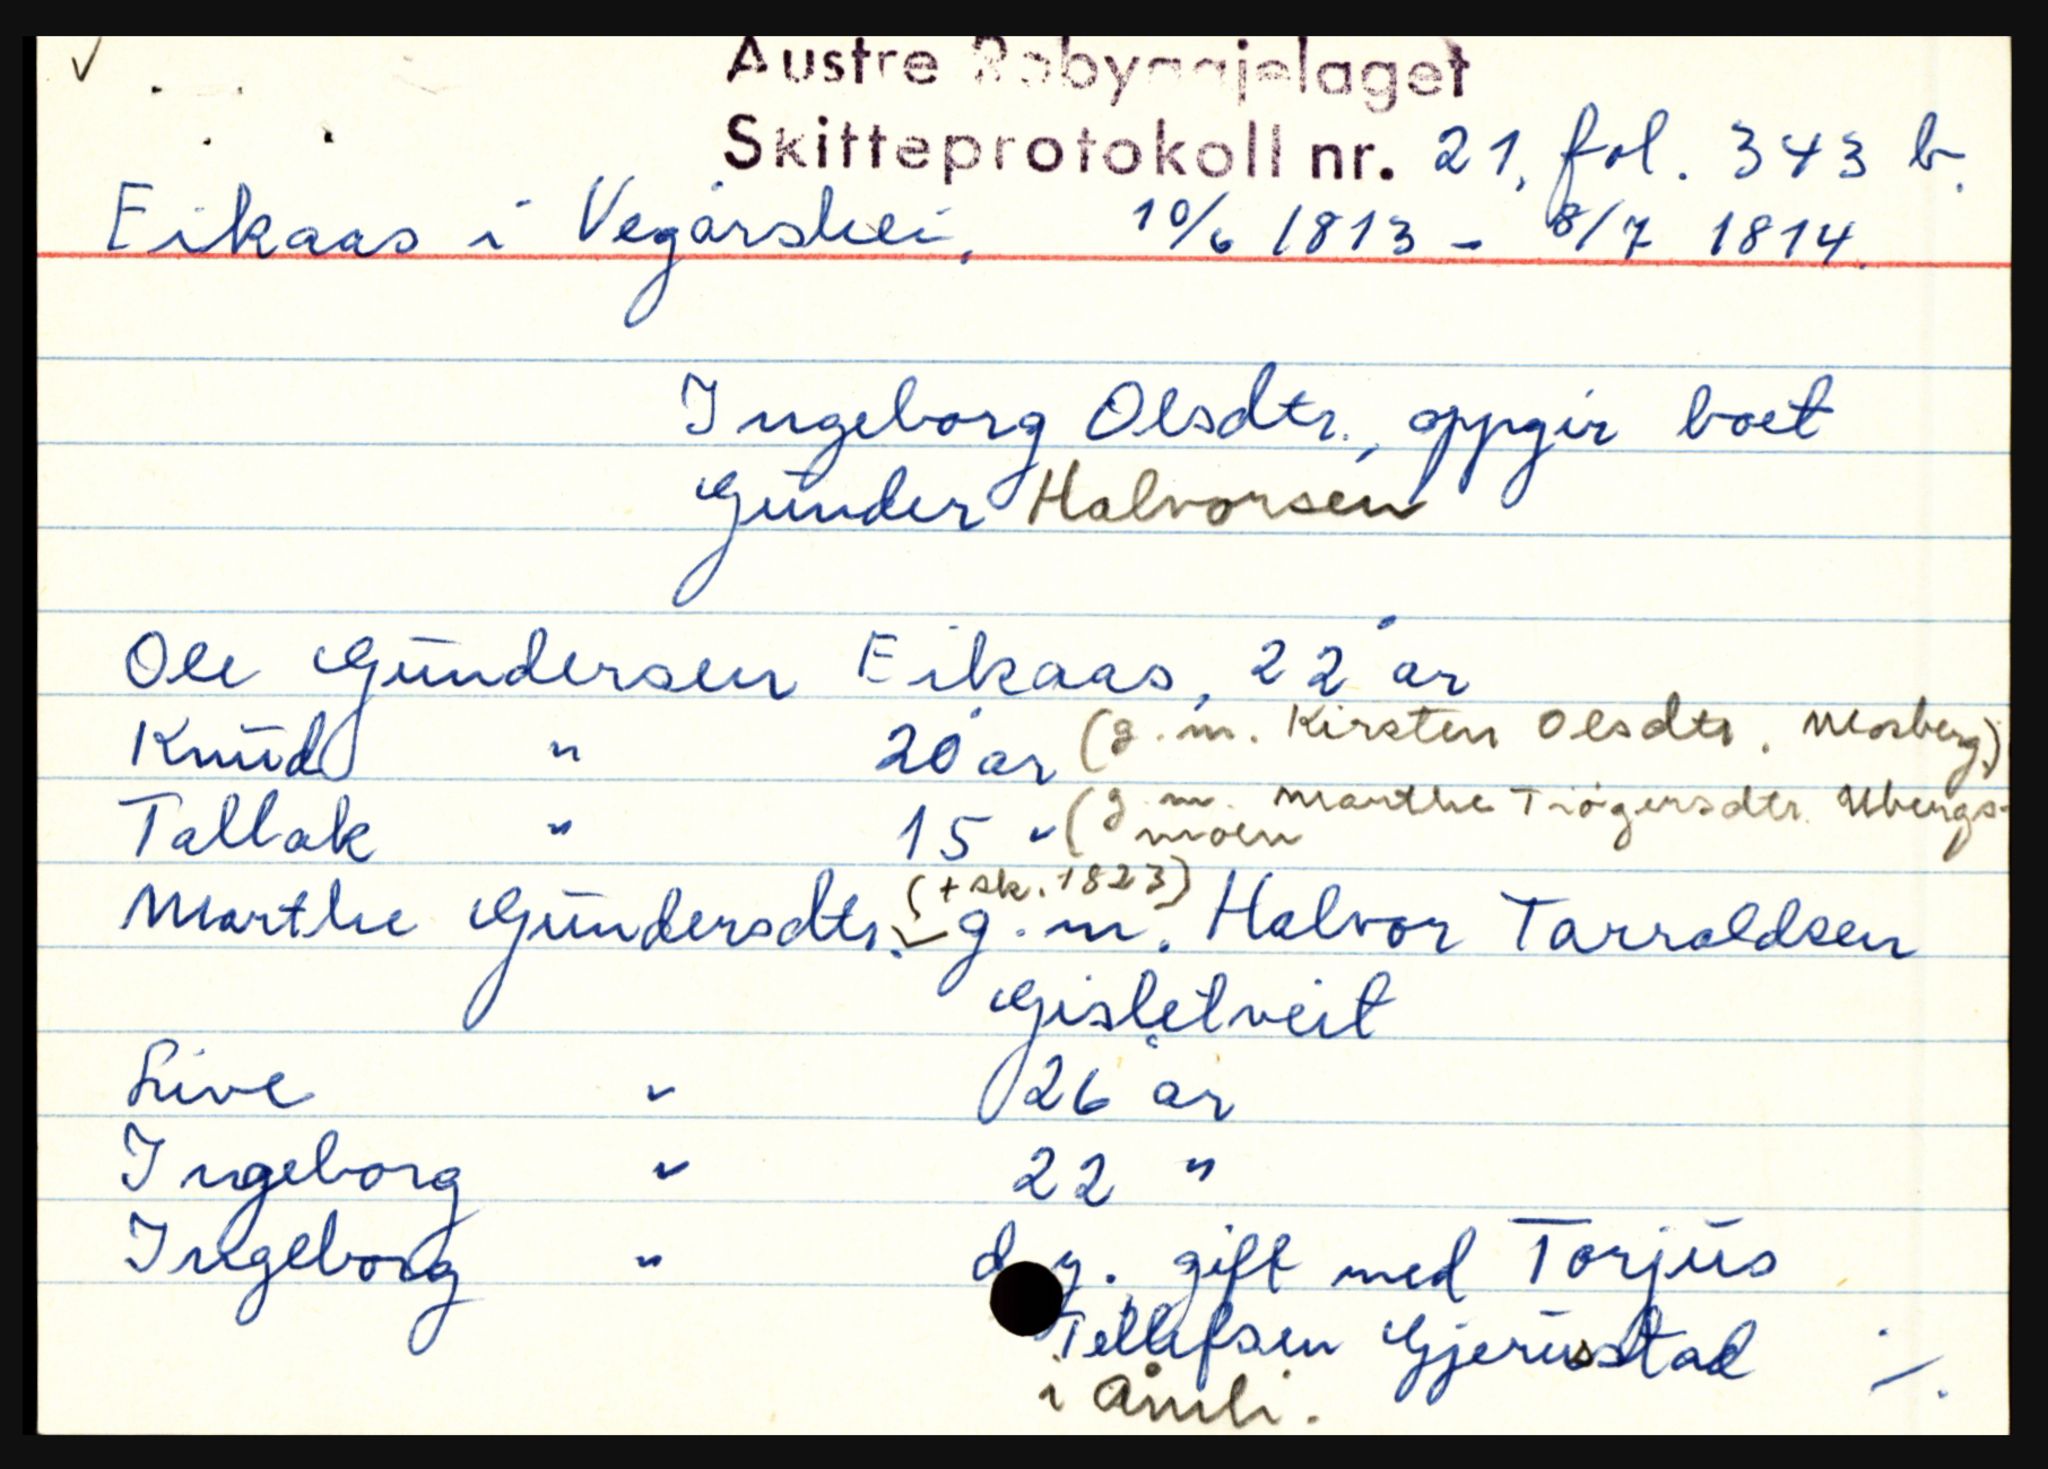 Austre Robyggjelaget
Skifteprotokoll nr. 21, fol. 343 b.
Eikaas i Vegårshei, 10/6 1813 - 8/7 1814.
Ingeborg Olsdtr., oppgir boet
Gunder Halvorsen
Ole Gundersen Eikaas, 22 år
Knud " 20 år (g.m. Kirsten Olsdtr. Mosberg)
Tallak " 15 " (g.m. Marthe Tiøgersdtr. Ubergs-
moen
(+ sk. 1823)
Marthe Gundersdtr. g.m. Halvor Tarraldsen
Gisletveit
Live " 26 år
Ingeborg " 22 "
Ingeborg " d.y. gift med Torjus
Tellefsen Gjerusstad ./.
i Åmli.